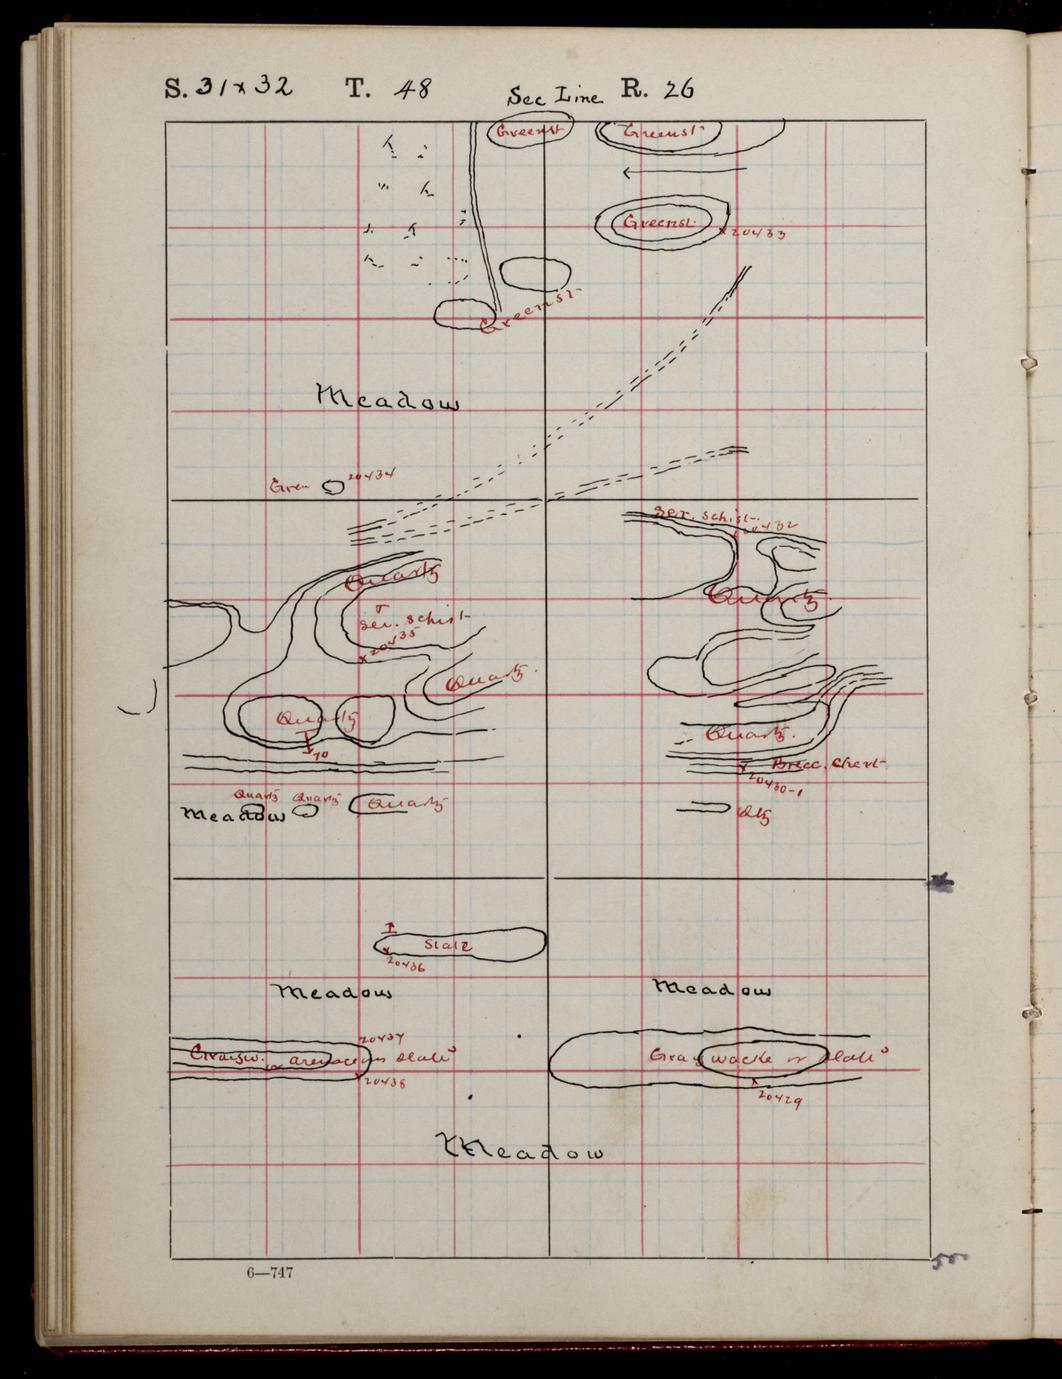 S. 31 x 32 T. 48 Sec Line R. 26
Greenst Greenst
Greenst. x 20433
Greenst
Meadow
20434
Ser. schist
x 20432
Quartz
Quartz
Ser. schist
x 20435
Quartz
Quartz
Quartz.
70
Brecc. Chert
x 20430-1
Quartz Quartz Quartz
Meadow
Qtz
Slate
x 20436
Meadow Meadow
20437
Grayw. or arenaceous slate
Graywacke or slate
x 20438
x 20429
Meadow
55
6—747